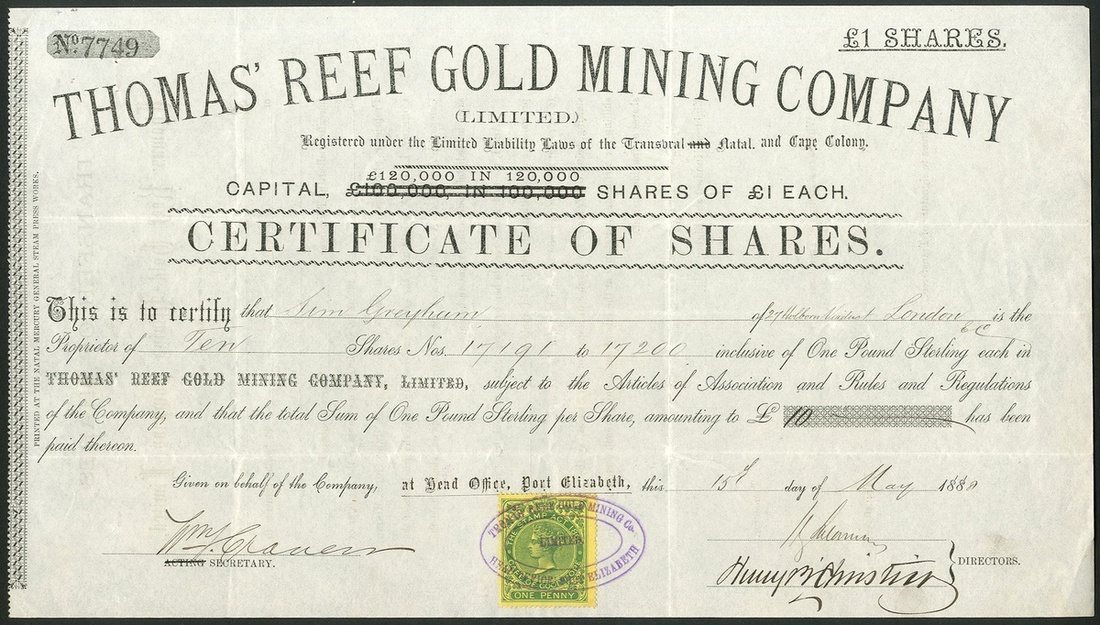 No. 7749
£1 SHARES.
THOMAS' REEF GOLD MINING COMPANY
(LIMITED.)
Registered under the Limited Liability Laws of the Transvaal and Natal. and Cape Colony.
£120,000 IN 120,000
CAPITAL, £100,000, IN 100,000 SHARES OF £1 EACH.
CERTIFICATE OF SHARES.
This is to certify that Greyham of 27 Holborn Viaduct London E C is the
Proprietor of Ten Shares Nos. 17191 to 17200 inclusive of One Pound Sterling each in
THOMAS' REEF GOLD MINING COMPANY, LIMITED, subject to the Articles of Association and Rules and Regulations
of the Company, and that the total Sum of One Pound Sterling per Share, amounting to £ 10 has been
paid thereon.
Given on behalf of the Company, at Head Office, Port Elizabeth, this 15th day of May 1889
Wm Craven
ACTING SECRETARY.
DIRECTORS.
THOMAS' REEF GOLD MINING Co.
LIMITED
HEAD OFFICE PORT ELIZABETH
THE STAMP ACT
ONE PENNY
PRINTED AT THE NATAL MERCURY GENERAL STEAM PRESS WORKS.